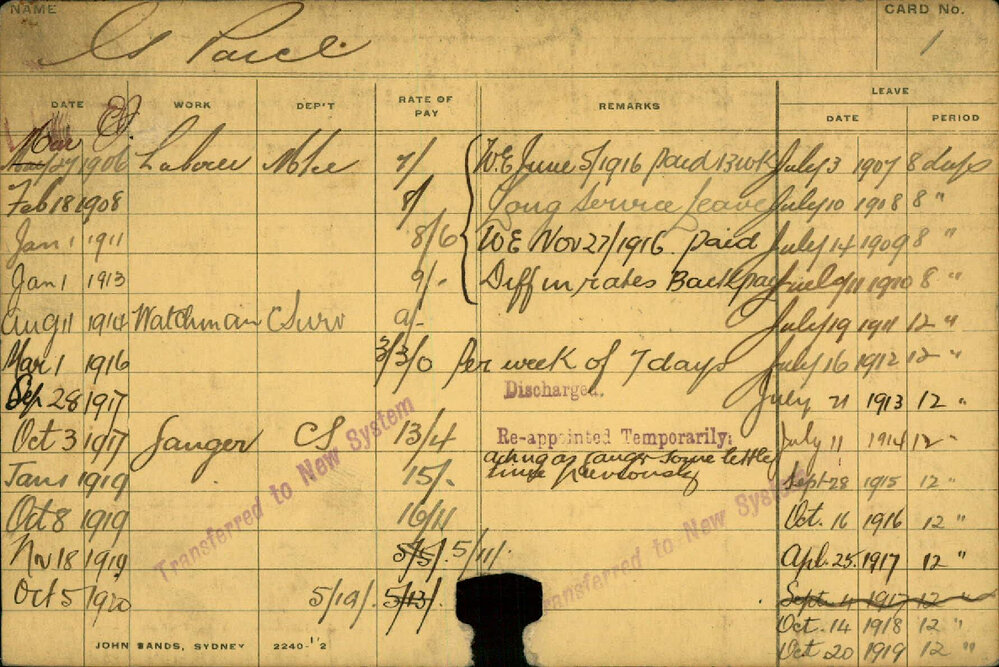 NAME CARD No.
1
DATE WORK DEP'T RATE OF PAY REMARKS LEAVE
DATE PERIOD
Mar 27 1906 Laborer 7/ W.E. June 5/1916 paid 13 wks July 3 1907 8 days
Feb 18 1908 8/ Long Service Leave July 10 1908 8 "
Jan 1 1911 8/6 W E Nov 27/1916 paid July 14 1909 8 "
Jan 1 1913 9/- Diff in rates Back pay 1910 8 "
Aug 11 1914 Watchman C Surv July 19 1911 12 "
Mar 1 1916 3/3/0 per week of 7 days July 16 1912 12 "
Sep 28 1917 Discharged. July 21 1913 12 "
Oct 3 1917 Ganger CS 13/4 Re-appointed Temporarily: July 11 1914 12 "
acting as ganger some little
Jan 1 1919 15/- time previously Sept 28 1915 12 "
Oct 8 1919 16/11 Oct. 16 1916 12 "
Nov 18 1919 5/5/. 5/11/. Apl. 25. 1917 12 "
Oct 5 1920 5/19/. 5/13/. Sept. 4 1917 12 "
Oct. 14 1918 12 "
Oct 20 1919 12 "
Transferred to New System
Transferred to New System
JOHN SANDS, SYDNEY 2240-